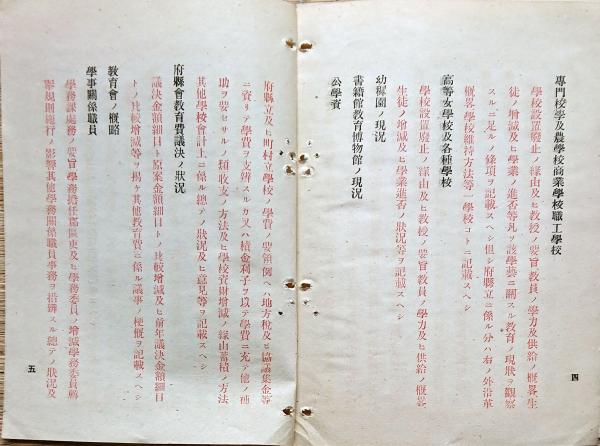 專門校學及農學校商業學校職工學校
學校設置廢止ノ緣由及ヒ敎授ノ要旨敎員ノ學力及供給ノ概畧生
徒ノ增減及ヒ學業ノ進否等凡ソ該學藝ニ關スル敎育ノ現狀ヲ觀察
スルニ足ルノ條項ヲ記載スヘシ但シ府縣立ニ係ル分ハ右ノ外沿革
概畧學校維持方法等一學校コトニ記載スヘシ
高等女學校及各種學校
學校設置廢止ノ緣由及ヒ敎授ノ要旨敎員ノ學力及ヒ供給ノ概畧
生徒ノ增減及ヒ學業進否ノ狀況等ヲ記載スヘシ
幼穉園ノ現況
書籍館敎育博物館ノ現況
公學資
四
府縣立及ヒ町村立學校ノ學費ノ要領例ヘハ地方稅及ヒ協議集金等
ニ資リテ學費ヲ支辨スルカ又ハ積金利子ヲ以テ學費ニ充テ他ノ補
助ヲ要セサルノ類收支ノ方法及ヒ學校資財增減ノ緣由蓄積ノ方法
其他學校會計上ニ係ル總テノ狀況及ヒ意見等ヲ記載スヘシ
府縣會敎育費議決ノ狀況
議決金額細目ト原案金額細目トノ比較增減及ヒ前年議決金額細目
トノ比較增減等ヲ揭ケ其他敎育費ニ係ル議事ノ梗概ヲ記載スヘシ
敎育會ノ概略
學事關係職員
學務課處務ノ要旨學務擔任郡區吏及ヒ學務委員ノ增減學務委員薦
擧規則施行ノ影響其他學務關係職員事務ヲ措辨スル總テノ狀況及
五